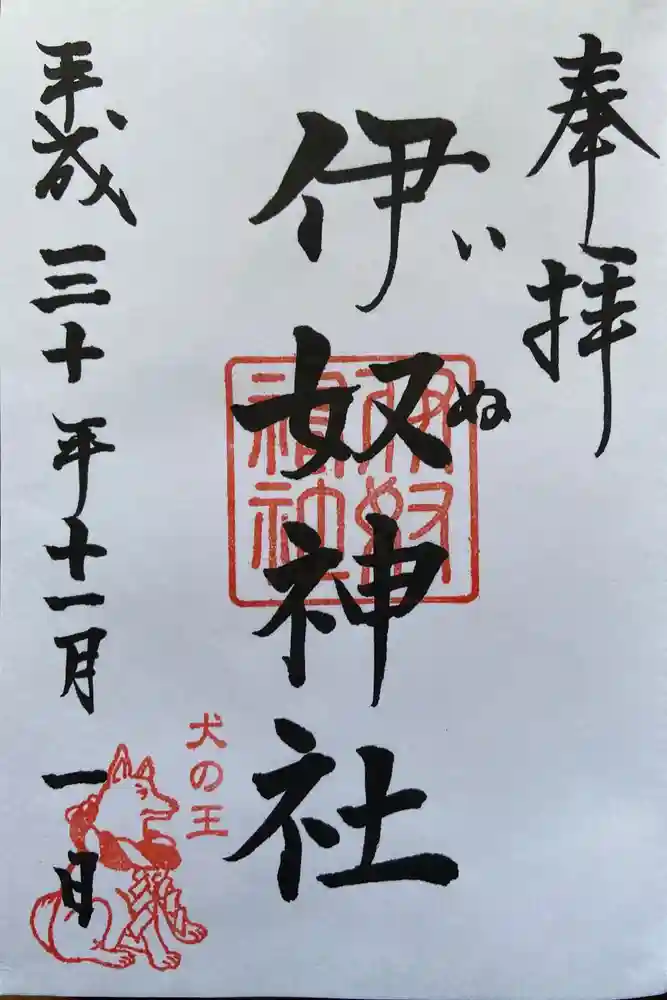 奉拝
伊奴神社
いぬ
平成三十年十一月一日
犬の王
伊奴
神社